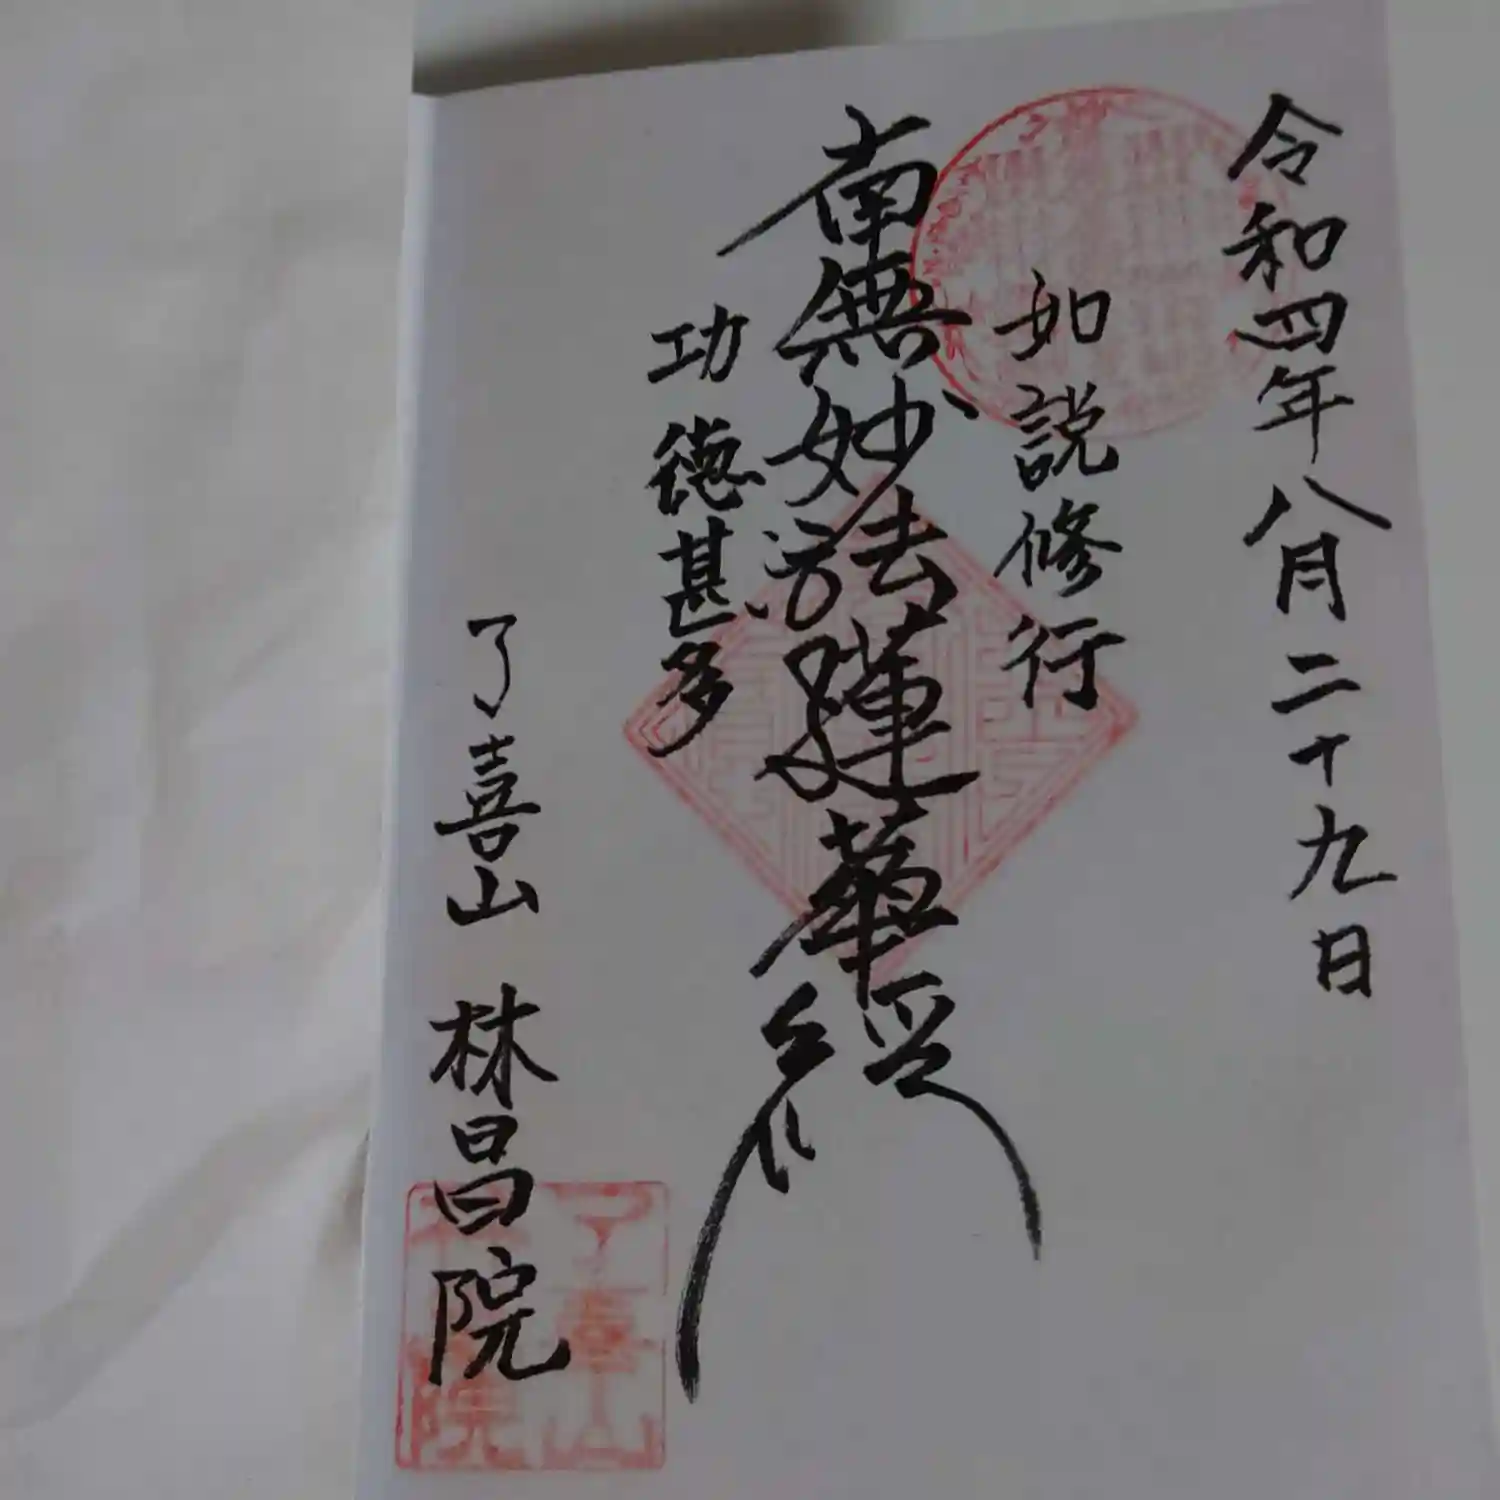 令和四年八月二十九日
如説修行
南無妙法蓮華経
功徳甚多
了喜山 林昌院
了喜山
林昌院